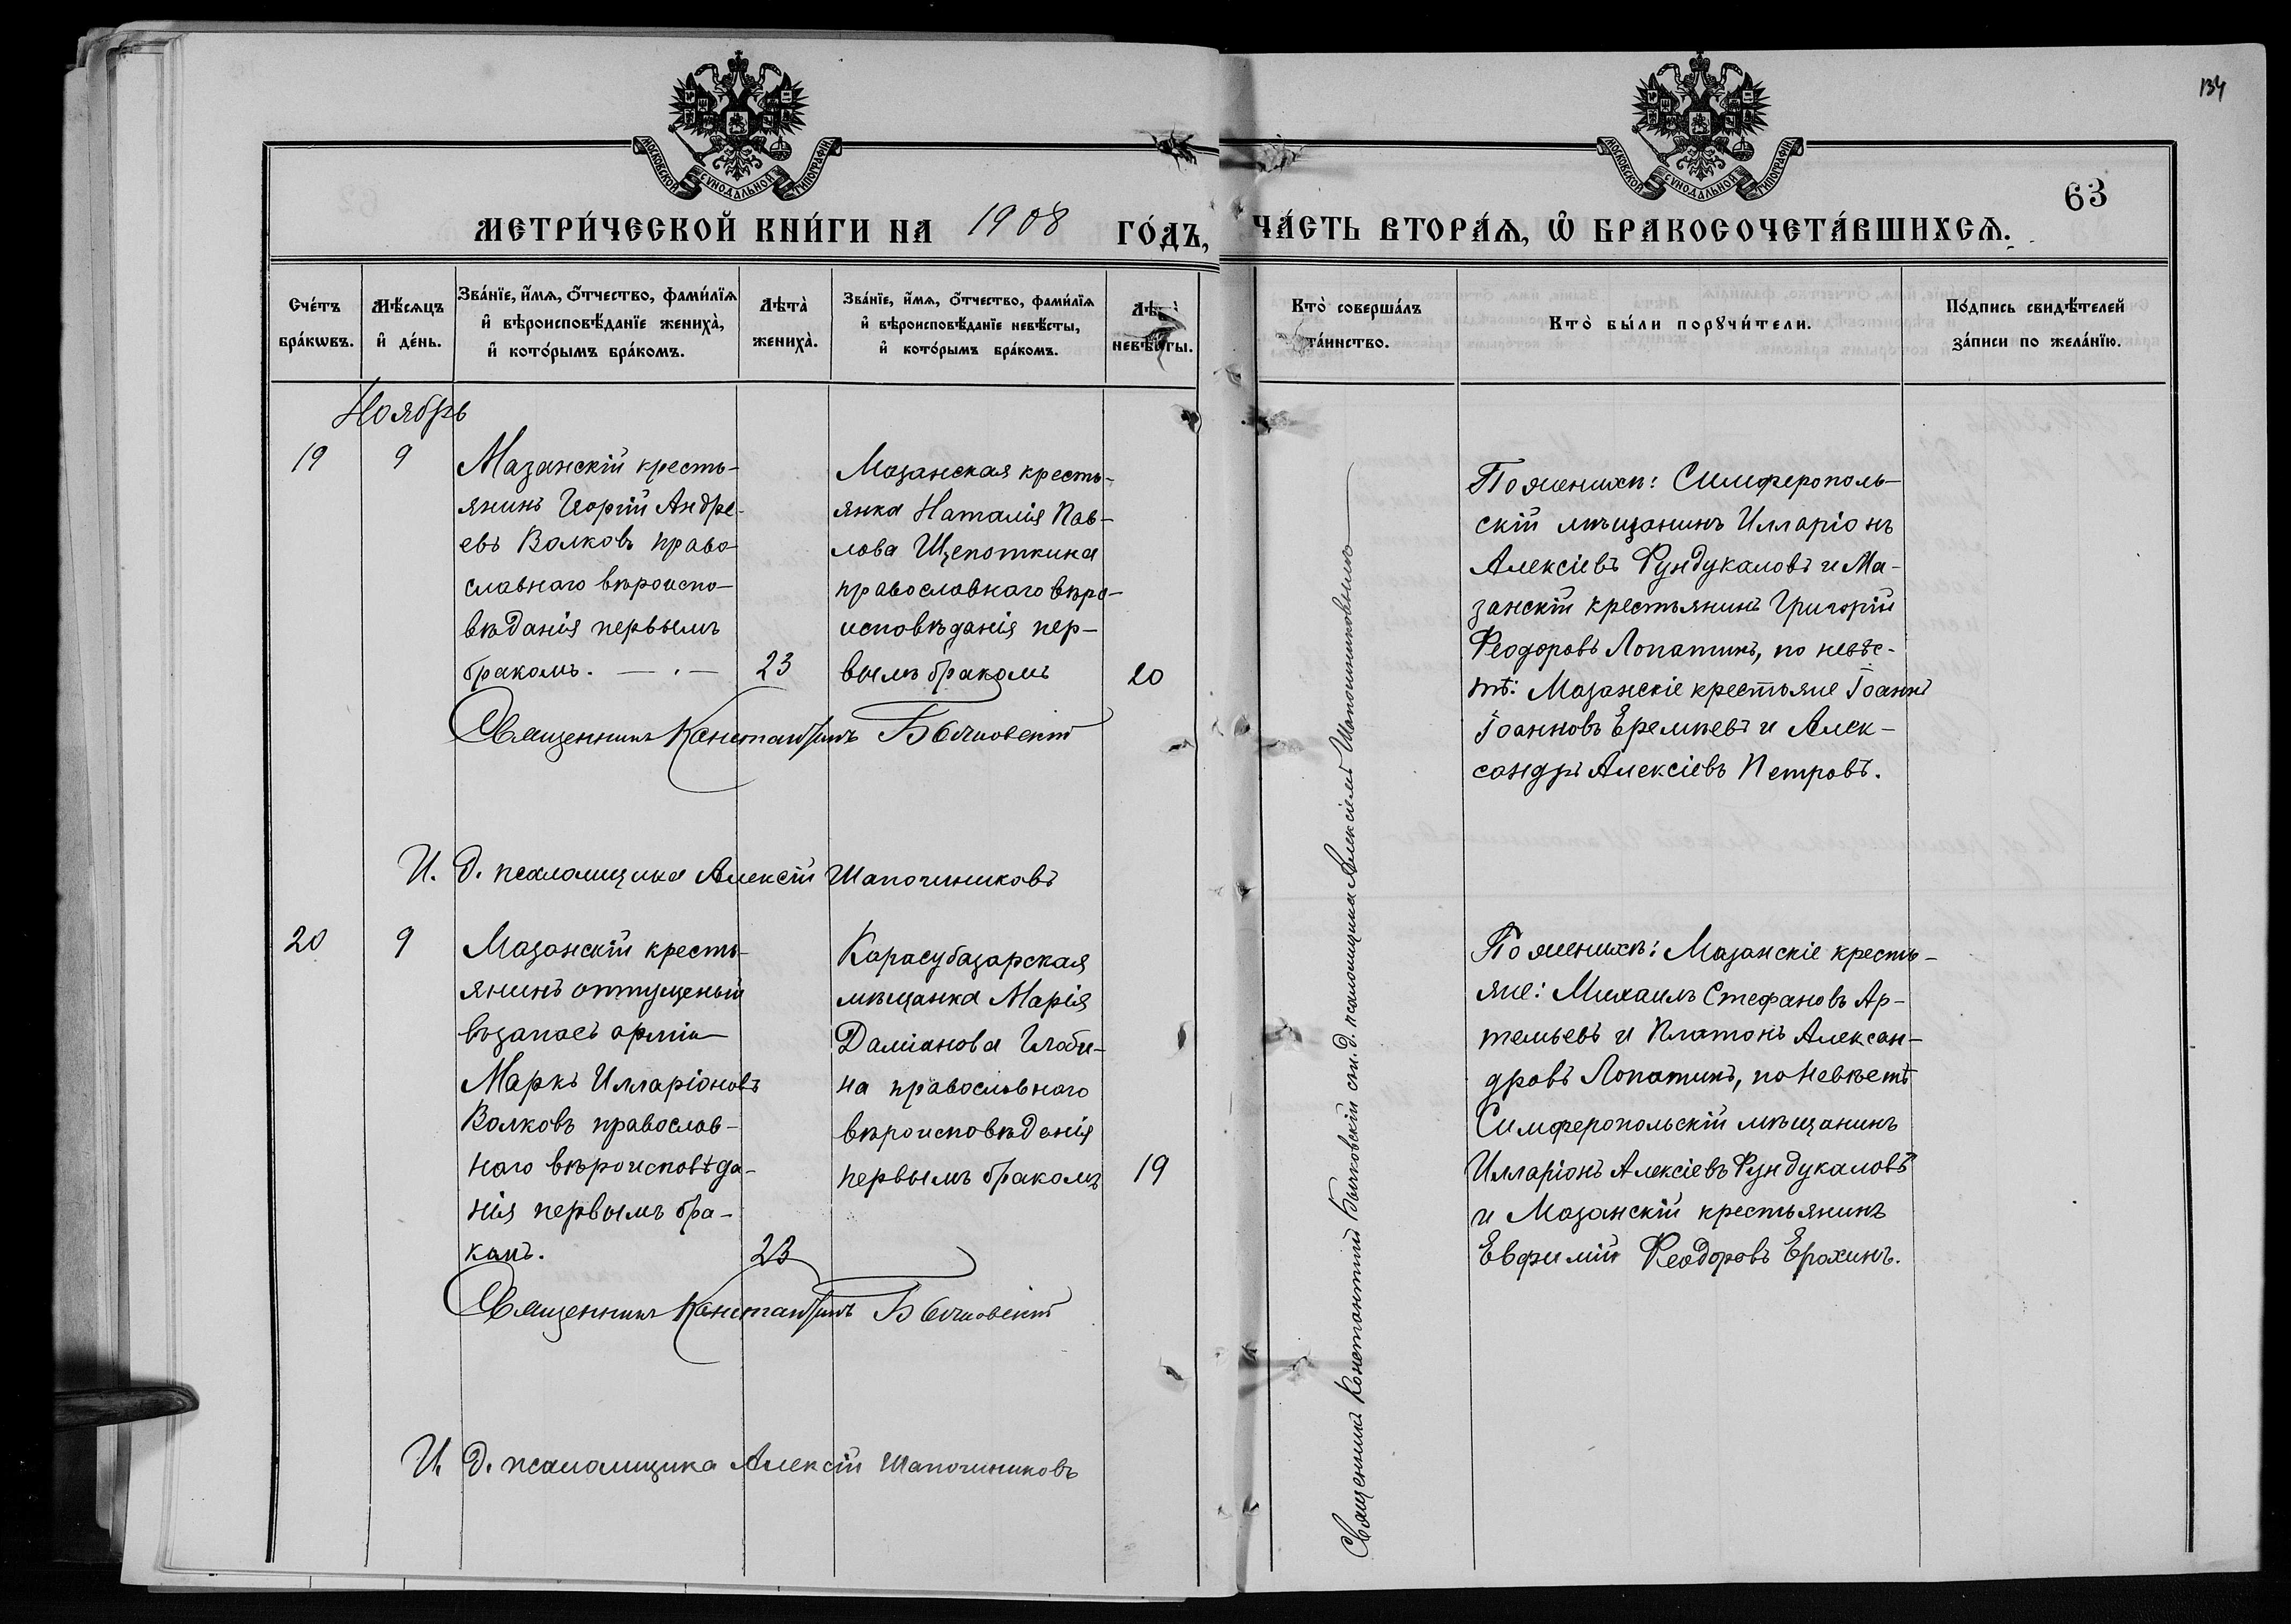 134
63
МОСКОВСКОЙ СѴНОДАЛЬНОЙ ТИПОГРАФІИ
МОСКОВСКОЙ СѴНОДАЛЬНОЙ ТИПОГРАФІИ
МЕТРИ́ЧЕСКОЙ КНИ́ГИ НА 1908 ГО́ДЪ, ЧА́СТЬ ВТОРА́Ѧ, Ѡ҆ БРАКОСОЧЕТА́ВШИХСѦ.
Сче́тъ
бра́кѡвъ.
Мѣ́сѧцъ
и҆ де́нь.
Зва́нїе, и҆́мѧ, ѻ҆́тчество, фами́лїѧ
и҆ вѣроисповѣ́данїе жениха̀,
и҆ кото́рымъ бра́комъ.
Лѣта̀
жениха̀.
Зва́нїе, и҆́мѧ, ѻ҆́тчество, фами́лїѧ
и҆ вѣроисповѣ́данїе невѣ́сты,
и҆ кото́рымъ бра́комъ.
Лѣта̀
невѣ́сты.
Кто̀ соверша́лъ
та́инство.
Кто̀ бы́ли порꙋчи́тели.
По́дпись свидѣ́телей
за́писи по жела́нїю.
Ноябрь
19
9
Мазанскій кресть-
янинъ Георгій Андре-
евъ Волковъ право-
славнаго вѣроиспо-
вѣданія первымъ
бракомъ.
23
Мазанская кресть-
янка Наталія Пав-
лова Щепоткина
православнаго вѣро-
исповѣданія пер-
вымъ бракомъ
20
По женихѣ: Симферополь-
скій мѣщанинъ Илларіонъ
Алексіевъ Фундукаловъ и Ма-
занскій крестьянинъ Григорій
Феодоровъ Лопатинъ, по невѣс-
тѣ: Мазанскіе крестьяне Іоаннъ
Іоанновъ Еремѣевъ и Алек-
сандръ Алексіевъ Петровъ.
Священникъ Константинъ Бычковскій
И. д. псаломщика Алексій Шапошниковъ
20
9
Мазанскій кресть-
янинъ отпущеный
въ запасъ арміи
Маркъ Илларіоновъ
Волковъ православ-
наго вѣроисповѣда-
нія первымъ бра-
комъ.
23
Карасубазарская
мѣщанка Марія
Даміанова Глоби-
на православного
вѣроисповѣданія
первымъ бракомъ
19
По женихѣ: Мазанскіе кресть-
яне: Михаилъ Стефановъ Ар-
темьевъ и Платонъ Алексан-
дровъ Лопатинъ, по невѣстѣ
Симферопольскій мѣщанинъ
Илларіонъ Алексіевъ Фундукаловъ
и Мазанскій крестьянинъ
Евфимій Феодоровъ Ерохинъ.
Священникъ Константинъ Бычковскій
И. д. псаломщика Алексій Шапошниковъ
Священникъ Константинъ Бычковскій съ и. д. псаломщика Алексіемъ Шапошниковымъ